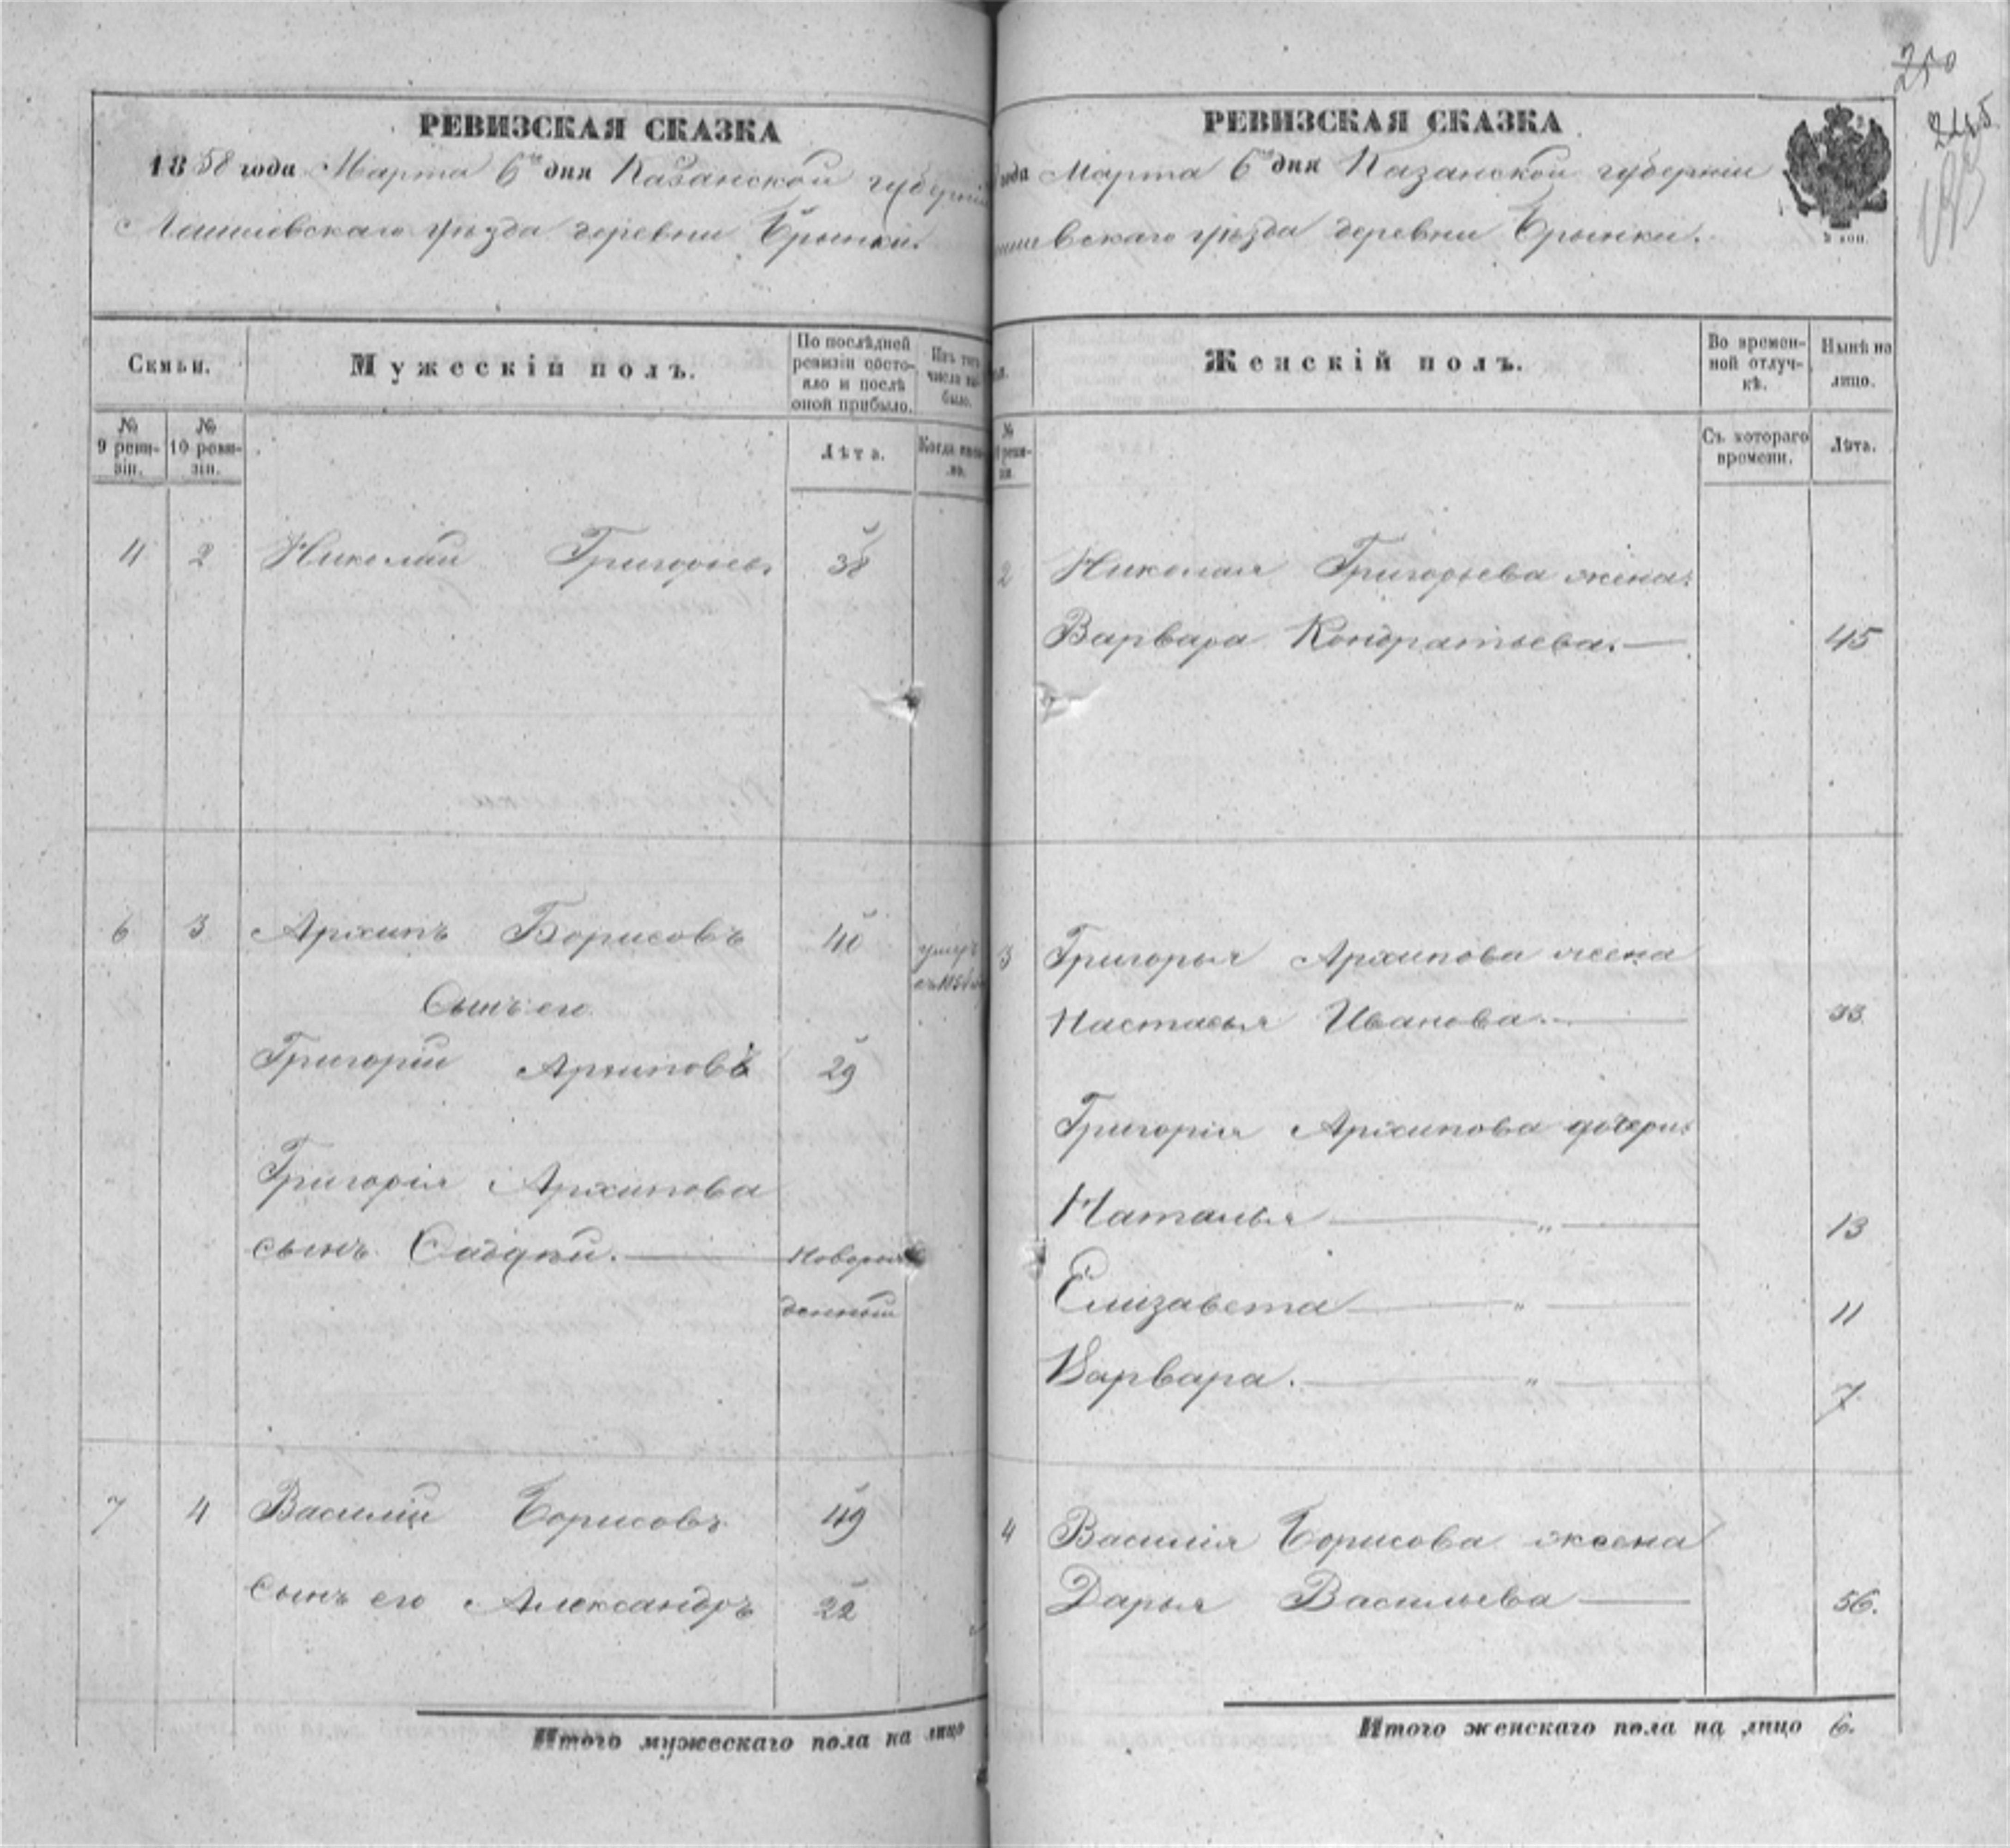 РЕВИЗСКАЯ СКАЗКА
1858 года Марта 6го дня Казанской губерніи
Лаишевскаго уѣзда деревни Брынки.
Семьи.
Мужескій полъ.
По послѣдней
ревизіи состо-
яло и послѣ
оной прибыло.
Изъ того
числа вы-
было.
№
9 реви-
зіи.
№
10 реви-
зіи.
Лѣта.
Когда имен-
но.
4 2 Николай Григорьевъ 38
6 3 Архипъ Борисовъ 40 умеръ
Сынъ его
Григорій Архиповъ 29
Григорія Архипова
сынъ Савдкій. новорож
денный
7 4 Василій Борисовъ 49
сынъ его Александръ 22
Итого мужескаго пола на лицо
250
245
РЕВИЗСКАЯ СКАЗКА
года Марта 6го дня Казанской губерніи
шевскаго уѣзда деревни Брынки.
3 коп.
Женскій полъ.
Во времен-
ной отлуч-
кѣ.
Нынѣ на
лицо.
№
реви-
зіи.
Съ котораго
времени.
Лѣта.
2 Николая Григорьева жена
Варвара Кондратьева. 45
3 Григорья Архипова жена
Настасья Иванова. 33
Григорія Архипова дочери
Наталья " 13
Елизавета " 11
Варвара. " 7
4 Василія Борисова жена
Дарья Васильева 56.
Итого женскаго пола на лицо 6.